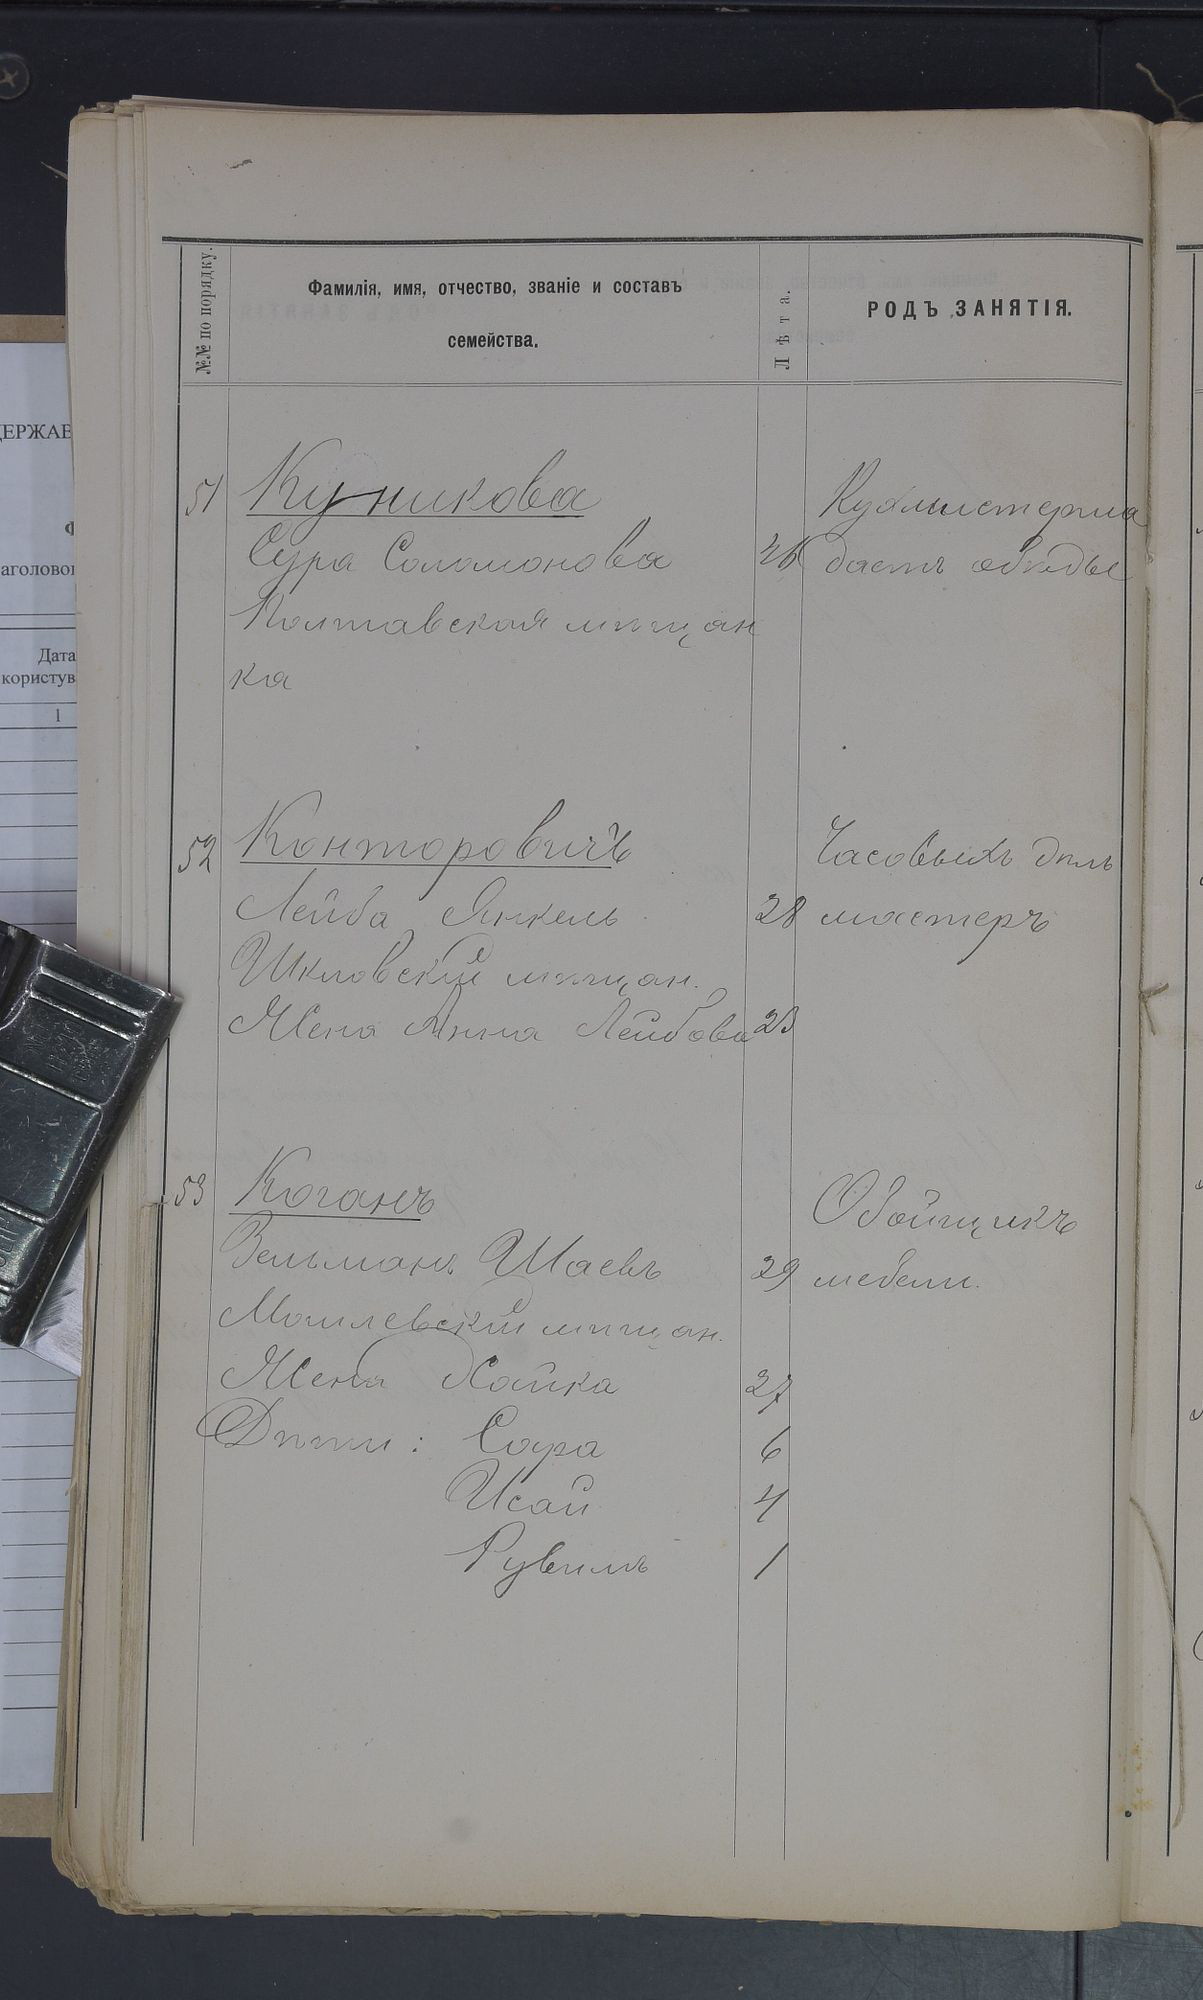 ДЕРЖАВ
Ф
аголовог
Дата
користув
1
№№ по порядку.
Фамилія, имя, отчество, званіе и составъ
семейства.
Лѣта.
РОДЪ ЗАНЯТІЯ.
51 Куникова Кухмистерша
Сура Соломонова 46 даетъ обѣды
Полтавская мѣщан
ка
52 Канторовичъ Часовыхъ дѣлъ
Лейба Янкель 28 мастеръ
Шкловскій мѣщан.
Жена Анна Лейбова 23
53 Коганъ Обойщикъ
Зельманъ Шаевъ 29 мебели.
Могилевскій мѣщан.
Жена Хайка 27
Дѣти: Сара 6
Исай 4
Рувимъ 1